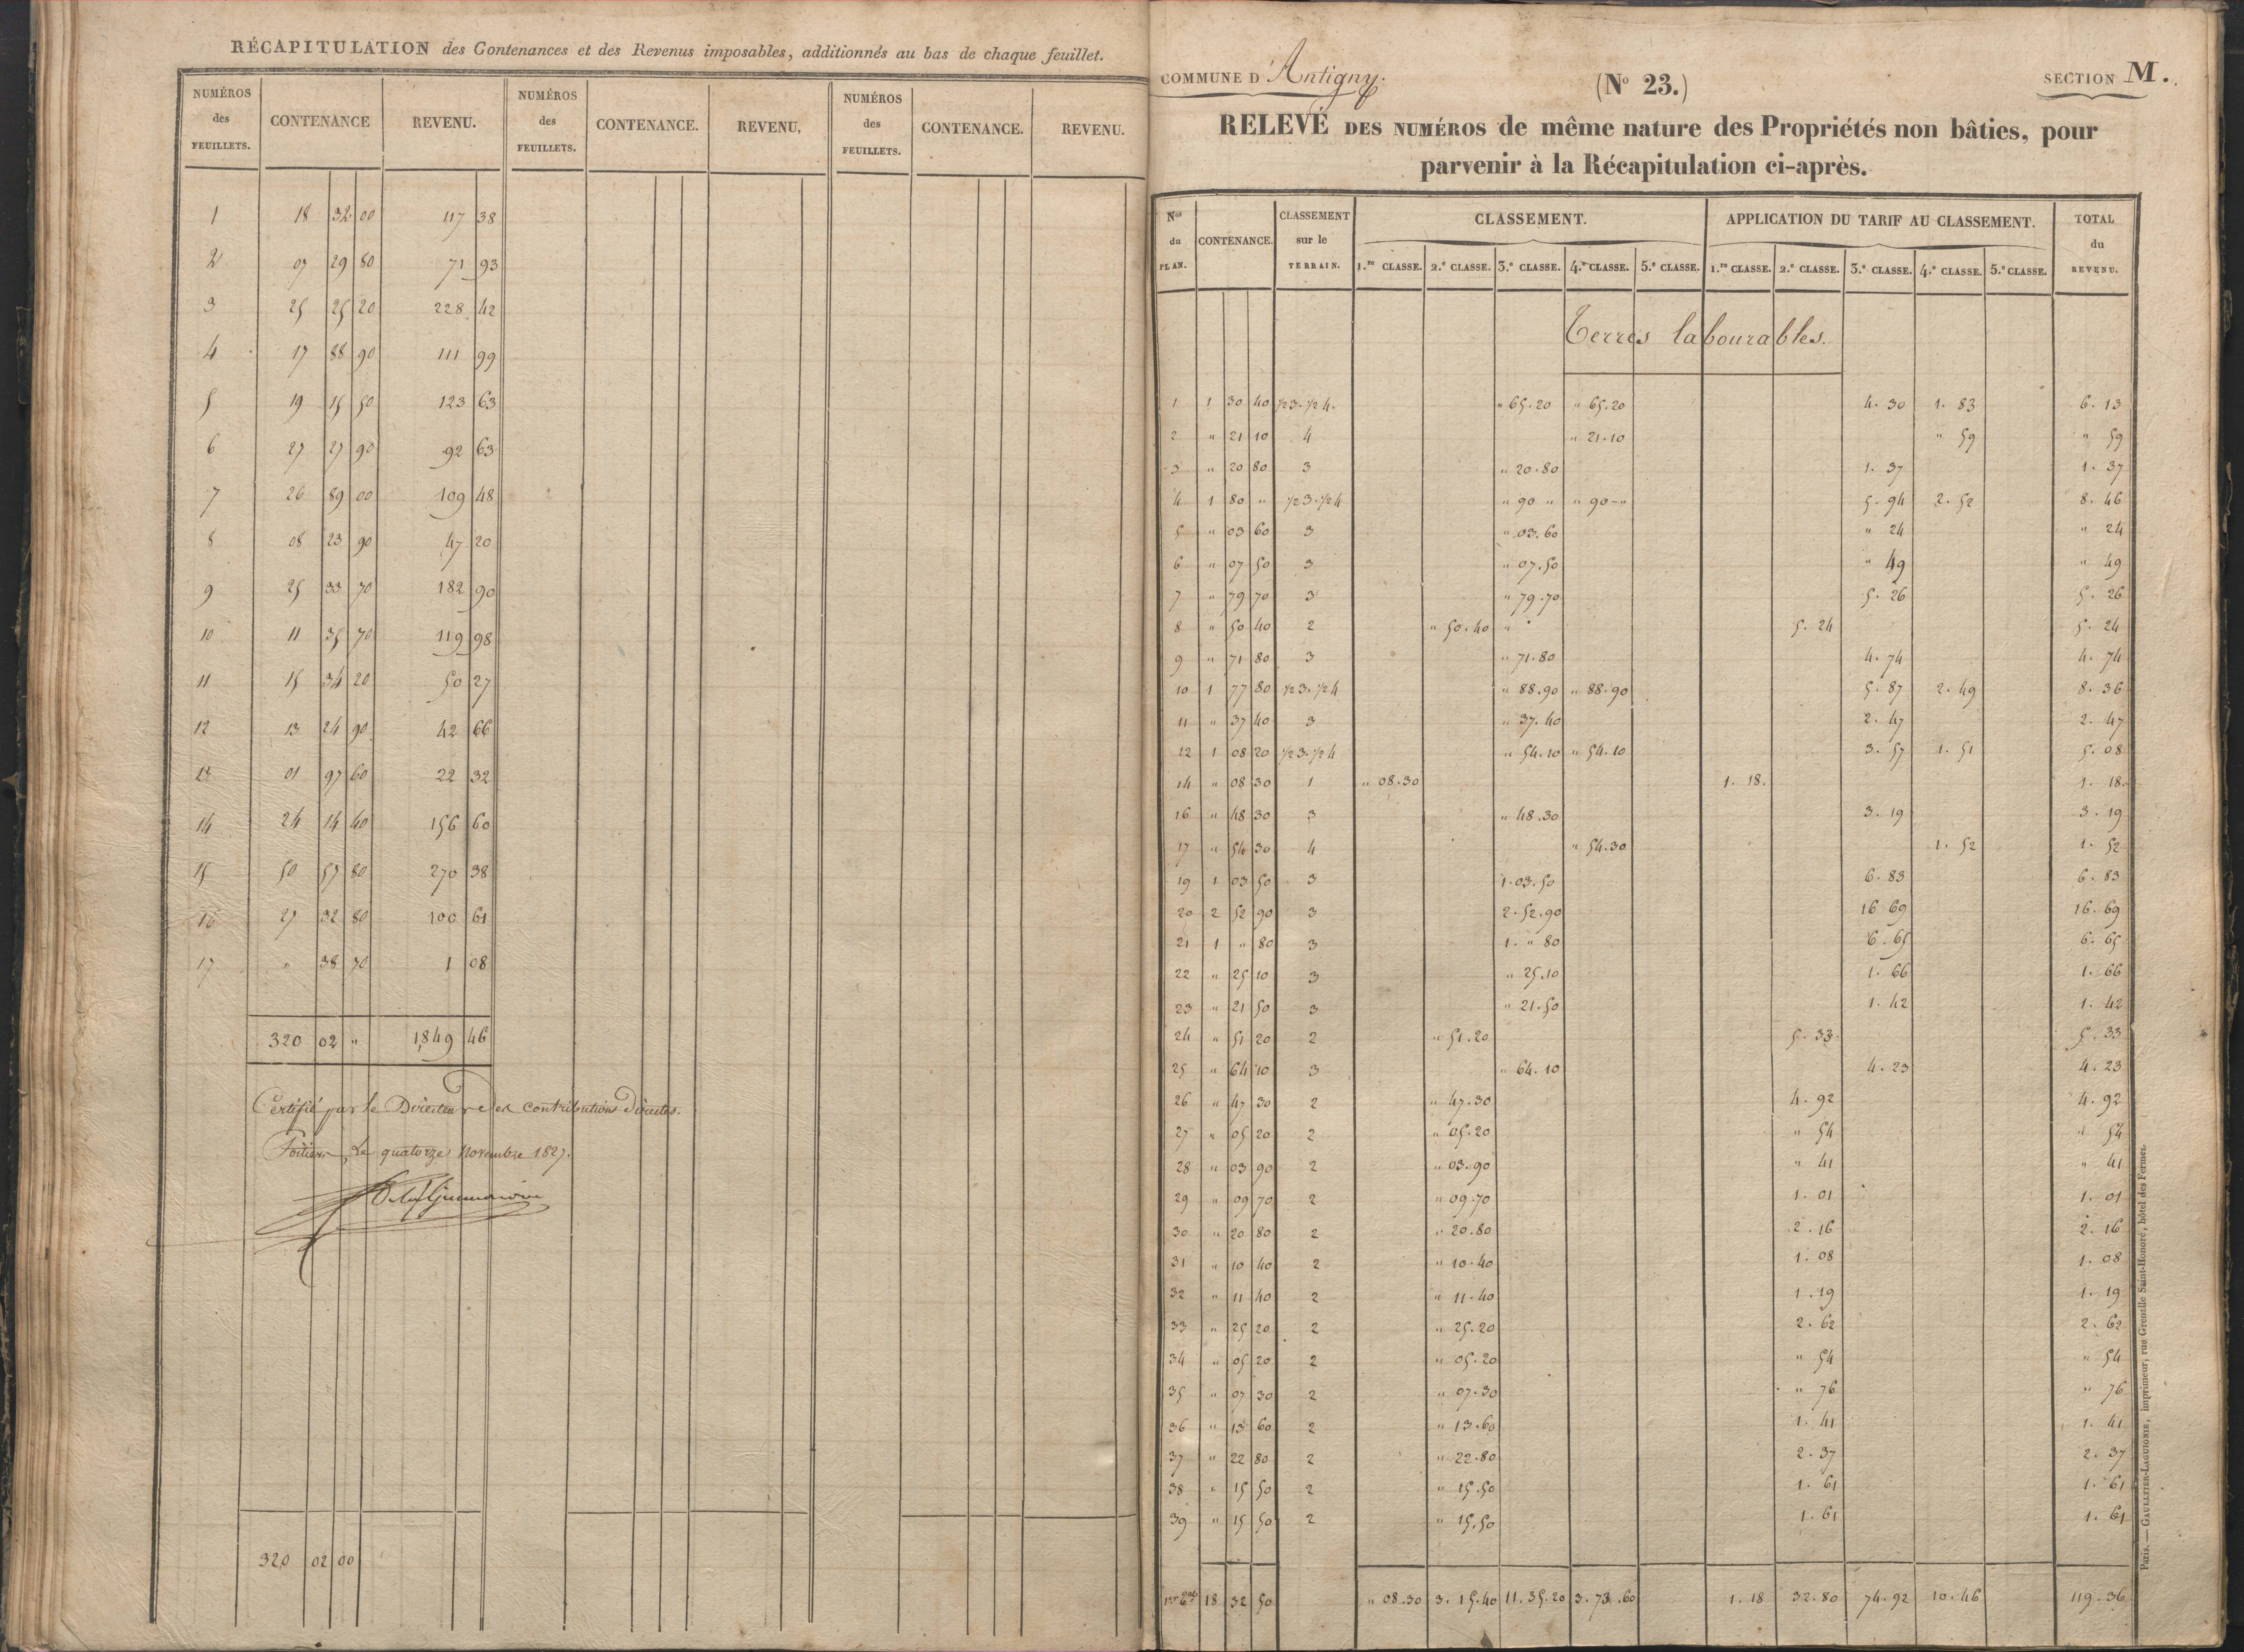 RÉCAPITULATION des Contenances et des Revenus imposables, additionnés au bas de chaque feuillet.
NUMÉROS des FEUILLETS. CONTENANCE REVENU. NUMÉROS des FEUILLETS. CONTENANCE. REVENU. NUMÉROS des FEUILLETS. CONTENANCE. REVENU.
1 18 32 00 117 38
2 07 29 80 71 93
3 25 25 20 228 42
4 17 88 90 111 99
5 19 15 50 123 63
6 27 27 90 92 63
7 26 89 00 109 48
8 08 23 90 47 20
9 25 33 70 182 90
10 11 35 70 119 98
11 15 34 20 50 27
12 13 24 90 42 66
13 01 97 60 22 32
14 24 14 40 156 60
15 50 57 80 270 38
16 27 32 80 100 61
17 " 38 70 1 08
320 02 " 1849 46
Certifié par le Directeur des contributions Directes.
Poitiers, Le quatorze Novembre 1827.
320 02 00
COMMUNE D'Antigny. (No 23.) SECTION M.
RELEVÉ DES NUMÉROS de même nature des Propriétés non bâties, pour
parvenir à la Récapitulation ci-après.
Nos du PLAN. CONTENANCE. CLASSEMENT sur le TERRAIN. CLASSEMENT. APPLICATION DU TARIF AU CLASSEMENT. TOTAL du REVENU.
1.re CLASSE. 2.e CLASSE. 3.e CLASSE. 4.e CLASSE. 5.e CLASSE. 1.re CLASSE. 2.e CLASSE. 3.e CLASSE. 4.e CLASSE. 5.e CLASSE.
Terres labourables.
1 1 30 40 1/2 3. 1/2 4. " 65.20 " 65.20 4. 30 1. 83 6. 13
2 " 21 10 4 " 21.10 " 59 " 59
3 " 20 80 3 " 20.80 1. 37 1. 37
4 1 80 " 1/2 3. 1/2 4 " 90 " " 90 - " 5. 94 2. 52 8. 46
5 " 03 60 3 " 03.60 " 24 " 24
6 " 07 50 3 " 07.50 " 49 " 49
7 " 79 70 3 " 79.70 5. 26 5. 26
8 " 50 40 2 " 50.40 " 5. 24 5. 24
9 " 71 80 3 " 71.80 4. 74 4. 74
10 1 77 80 1/2 3. 1/2 4 " 88.90 " 88.90 5. 87 2. 49 8. 36
11 " 37 40 3 " 37.40 2. 47 2. 47
12 1 08 20 1/2 3. 1/2 4 " 54.10 " 54.10 3. 57 1. 51 5. 08
14 " 08 30 1 " 08.30 1. 18. 1. 18.
16 " 48 30 3 " 48.30 3. 19 3. 19
17 " 54 30 4 " 54.30 1. 52 1. 52
19 1 03 50 3 1.03.50 6. 83 6. 83
20 2 52 90 3 2.52.90 16 69 16. 69
21 1 " 80 3 1. " 80 6. 65 6. 65
22 " 25 10 3 " 25.10 1. 66 1. 66
23 " 21 50 3 " 21.50 1. 42 1. 42
24 " 51 20 2 " 51.20 5. 33. 5. 33
25 " 64 10 3 " 64.10 4. 23 4. 23
26 " 47 30 2 " 47.30 4. 92 4. 92
27 " 05 20 2 " 05.20 " 54 " 54
28 " 03 90 2 " 03.90 " 41 " 41
29 " 09 70 2 " 09.70 1. 01 1. 01
30 " 20 80 2 " 20.80 2. 16 2. 16
31 " 10 40 2 " 10.40 1. 08 1. 08
32 " 11 40 2 " 11.40 1. 19 1. 19
33 " 25 20 2 " 25.20 2. 62 2. 62
34 " 05 20 2 " 05.20 " 54 " 54
35 " 07 30 2 " 07.30 " 76 " 76
36 " 13 60 2 " 13.60 1. 41 1. 41
37 " 22 80 2 " 22.80 2. 37 2. 37
38 " 15 50 2 " 15.50 1. 61 1. 61
39 " 15 50 2 " 15.50 1. 61 1. 61
18 32 50 " 08.30 3. 15.40 11. 35.20 3. 73.60 1. 18 32. 80 74. 92 10. 46 119. 36
Paris. — GAULTIER-LAGUIONIE, imprimeur, rue Grenelle Saint-Honoré, hôtel des Fermes.